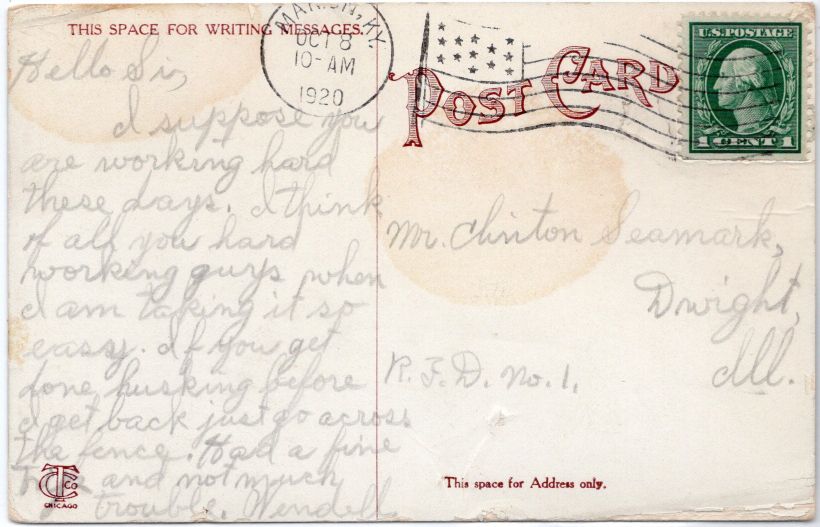 THIS SPACE FOR WRITING MESSAGES.
MARION, KY.
OCT 8
10-AM
1920
POST CARD
U.S. POSTAGE
1 CENT 1
Hello Si,
I suppose you
are working hard
these days. I think
of all you hard
working guys when
I am taking it so
easy. If you get
done husking before
I get back just go across
tha fence. Had a fine
trip and not much
trouble. Wendell
Mr. Clinton Seamark,
Dwight,
Ill.
R.F.D. No. 1.
This space for Address only.
CTCO
CHICAGO